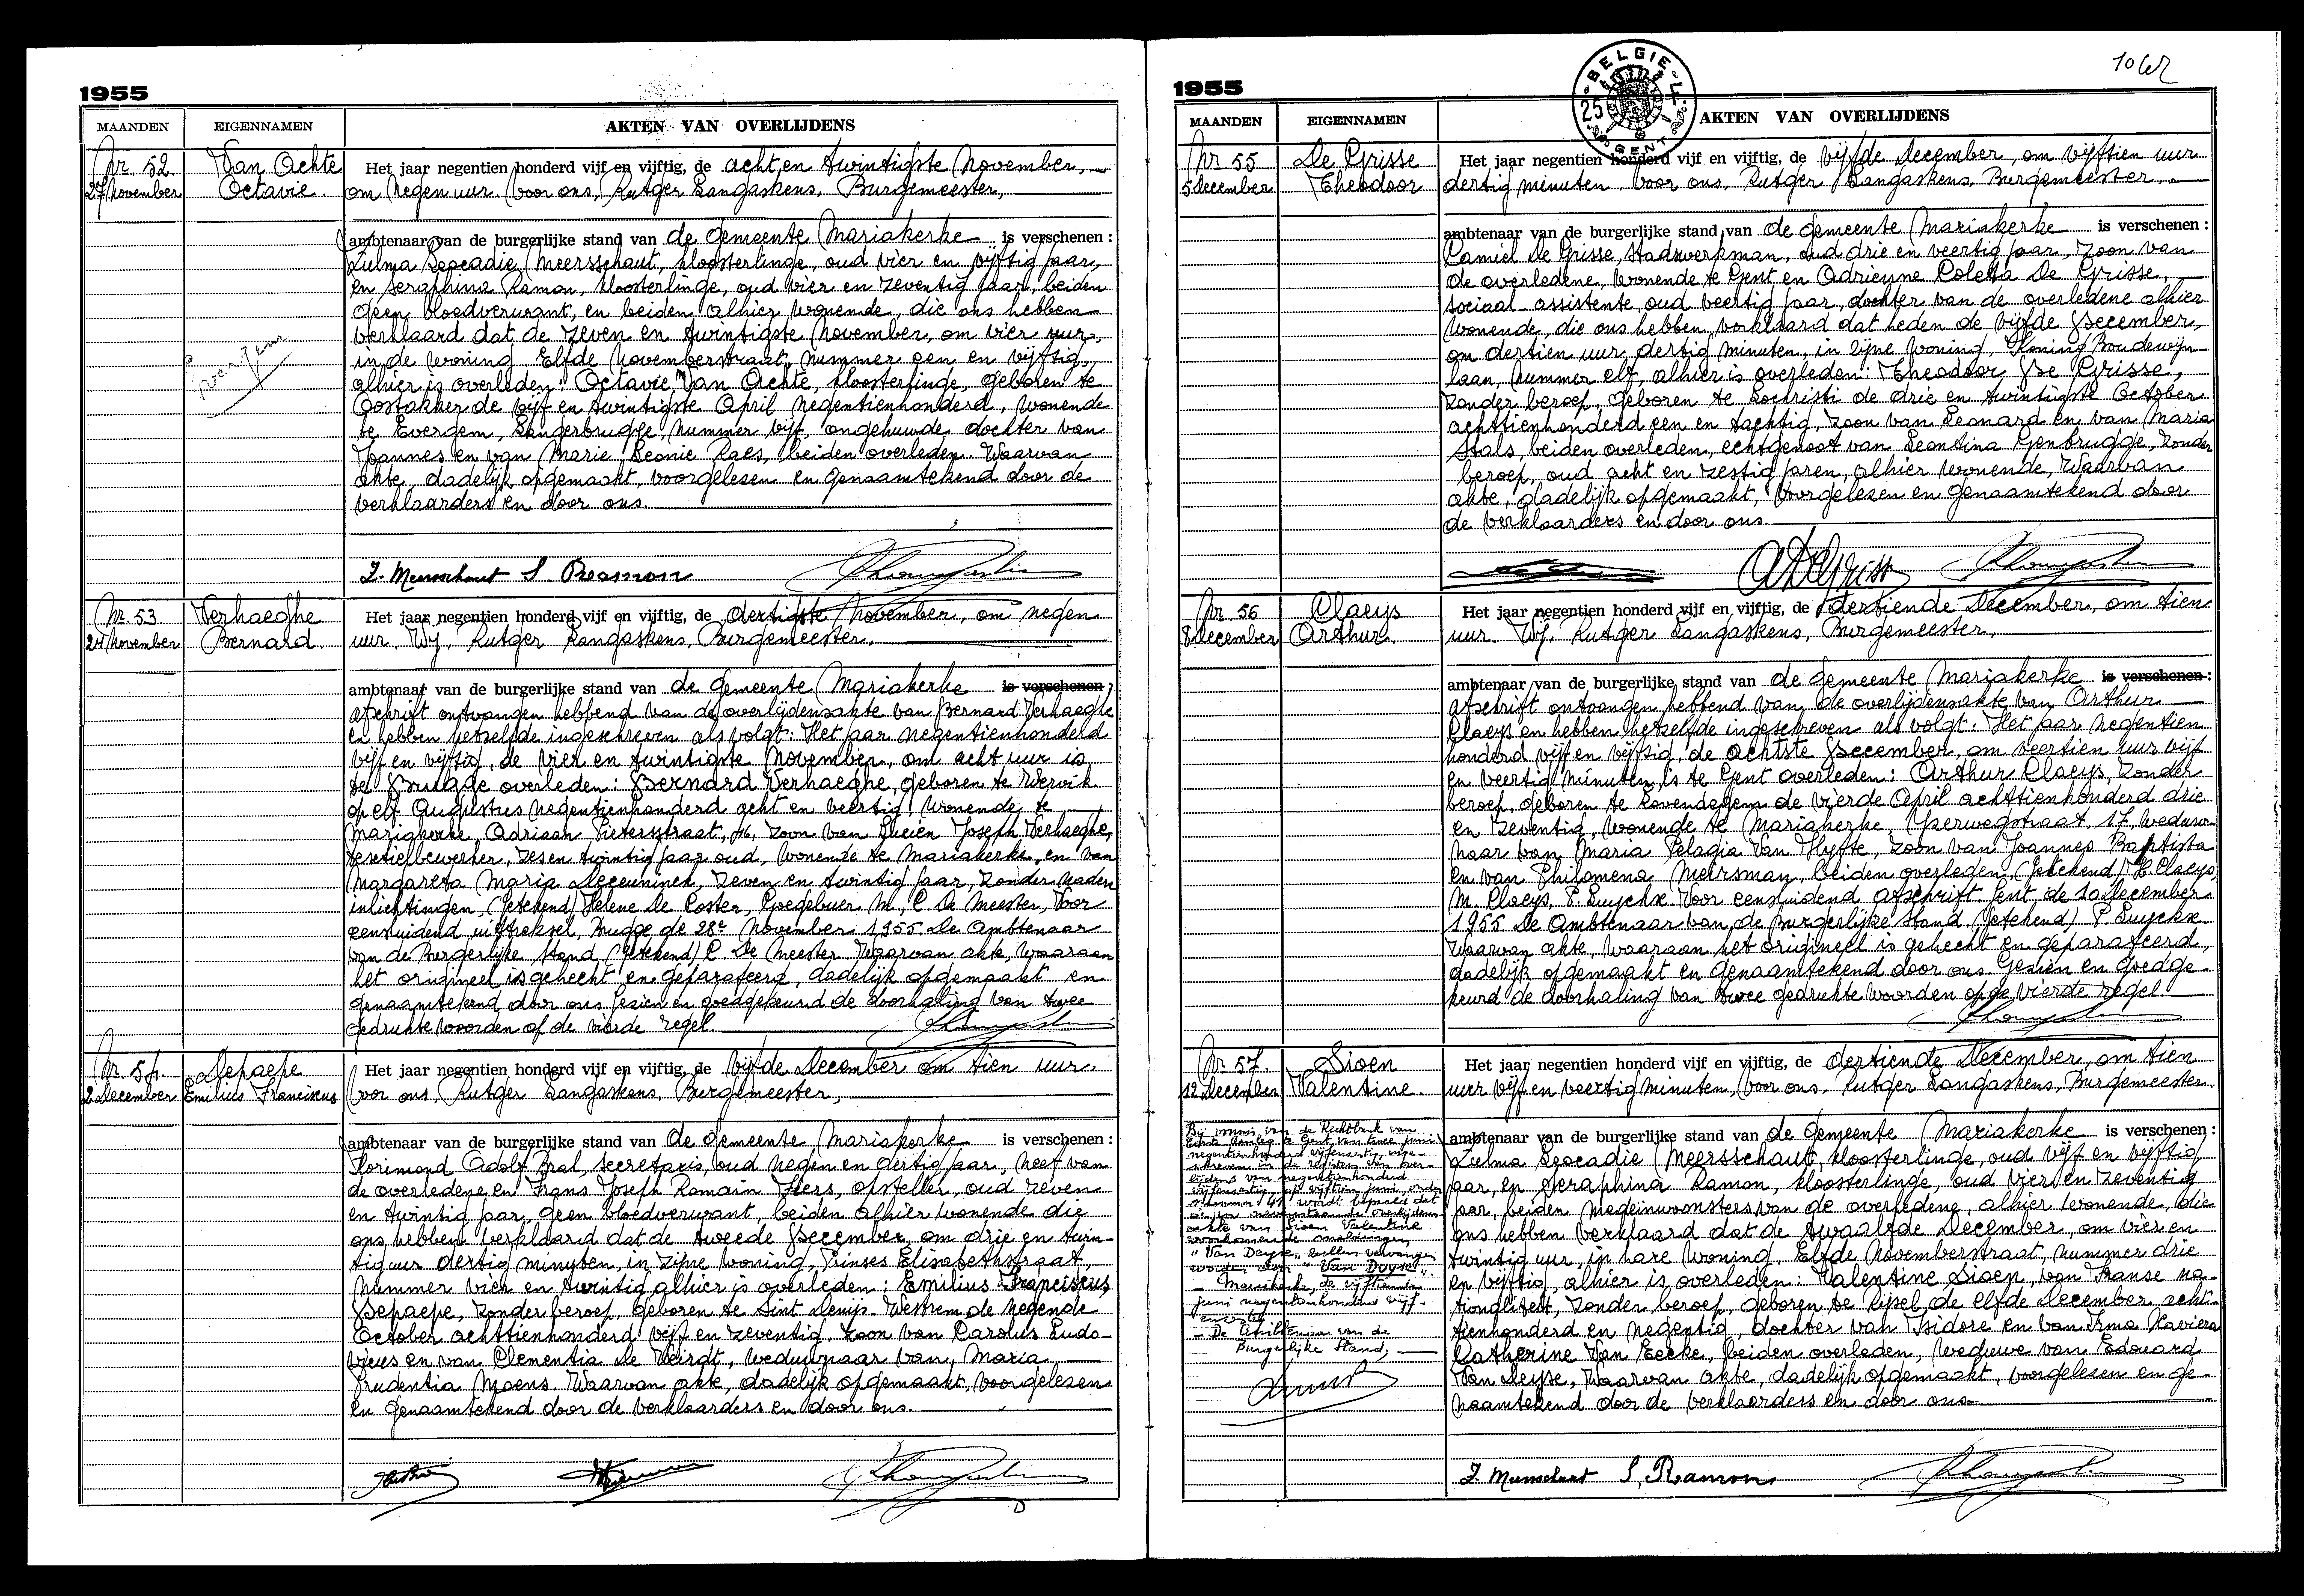 1955
MAANDEN
EIGENNAMEN
AKTEN VAN OVERLIJDENS
Nr. 52
27 November
Van Achte
Octavie
Het jaar negentien honderd vijf en vijftig, de acht en twintigste November,
om negen uur. Voor ons, Rutger Langaskens, Burgemeester,
ambtenaar van de burgerlijke stand van de gemeente Mariakerke is verschenen :
Zulma Leocadie Meersschaut, kloosterlinge, oud vier en vijftig jaar,
en Seraphina Ramon, kloosterlinge, oud vier en zeventig jaar, beiden
geen bloedverwant, en beiden alhier wonende, die ons hebben
verklaard dat de zeven en twintigste November, om vier uur,
in de woning Elfde Novemberstraat, nummer een en vijftig,
alhier is overleden: Octavie Van Achte, kloosterlinge, geboren te
Oostakker de vijf en twintigste April negentienhonderd, wonende
te Evergem, Langerbrugge, nummer vijf, ongehuwde dochter van
Joannes en van Marie Leonie Raes, beiden overleden. Waarvan
akte, dadelijk opgemaakt, voorgelesen en genaamtekend door de
verklaarders en door ons.
Evergem
Z. Meersschaut S. Ramon
Nr. 53
24 November
Verhaeghe
Bernard
Het jaar negentien honderd vijf en vijftig, de dertigste November, om negen
uur. Wij, Rutger Langaskens, Burgemeester,
ambtenaar van de burgerlijke stand van de gemeente Mariakerke is verschenen ;
afschrift ontvangen hebbend van de overlijdensakte van Bernard Verhaeghe
en hebben hetzelfde ingeschreven als volgt: Het jaar negentienhonderd
vijf en vijftig, de vier en twintigste November, om acht uur is
te Brugge overleden: Bernard Verhaeghe, geboren te Wervik
op elf Augustus negentienhonderd acht en veertig, wonende te
Mariakerke, Adriaan Pietersstraat, 16, zoon van Lucien Joseph Verhaeghe,
textielbewerker, zes en twintig jaar oud, wonende te Mariakerke, en van
Margareta Maria Deceuninck, zeven en twintig jaar, zonder nadere
inlichtingen, (getekend) Helene De Coster, Goegebuer M., C De Meester, Voor
eensluidend uittreksel, Brugge de 28e November 1955. De Ambtenaar
van de Burgerlijke stand (getekend) C De Meester. Waarvan akte, waaraan
het origineel is gehecht en geparafeerd, dadelijk opgemaakt en
genaamtekend door ons. Gezien en goedgekeurd de doorhaling van twee
gedrukte woorden op de vierde regel.
Nr. 54
2 December
Depaepe
Emilius Franciscus
Het jaar negentien honderd vijf en vijftig, de vijfde December om tien uur.
Voor ons, Rutger Langaskens, Burgemeester,
ambtenaar van de burgerlijke stand van de gemeente Mariakerke is verschenen :
Florimond Adolf Bral, secretaris, oud negen en dertig jaar, neef van
de overledene en Frans Joseph Romain Heers, opsteller, oud zeven
en twintig jaar, geen bloedverwant, beiden alhier wonende die
ons hebben verklaard dat de tweede December, om drie en twin-
tig uur dertig minuten, in zijne woning, Prinses Elisabethstraat,
nummer vier en twintig alhier is overleden : Emilius Franciscus
Depaepe, zonder beroep, geboren te Sint Denijs Westrem de negende
October achttienhonderd vijf en zeventig, zoon van Carolus Ludo-
vicus en van Clementia De Weirdt, weduwnaar van, Maria
Prudentia Moens. Waarvan akte, dadelijk opgemaakt, voorgelesen
en genaamtekend door de verklaarders en door ons.
1955
BELGIE
25
GENT
MAANDEN
EIGENNAMEN
AKTEN VAN OVERLIJDENS
Nr 55
5 december
De Grisse
Theodoor
Het jaar negentien honderd vijf en vijftig, de vijfde December, om vijftien uur
dertig minuten. Voor ons, Rutger Langaskens, Burgemeester,
ambtenaar van de burgerlijke stand van de gemeente Mariakerke is verschenen :
Camiel De Grisse, stadswerkman, oud drie en veertig jaar, zoon van
de overledene, wonende te Gent en Adrienne Coletta De Grisse,
sociaal-assistente, oud veertig jaar, dochter van de overledene alhier
wonende, die ons hebben verklaard dat heden de vijfde December,
om dertien uur dertig minuten, in zijne woning, Koning Boudewijn-
laan, nummer elf, alhier is overleden: Theodoor De Grisse,
zonder beroep, geboren te Lochristi de drie en twintigste October
achttienhonderd een en tachtig, zoon van Leonard en van Maria
Stals, beiden overleden, echtgenoot van Leontina Genbrugge, zonder
beroep, oud acht en zestig jaren, alhier wonende, Waarvan
akte, dadelijk opgemaakt, voorgelesen en genaamtekend door
de verklaarders en door ons.
ADeGrisse
Nr 56
8 december
Claeys
Arthur
Het jaar negentien honderd vijf en vijftig, de dertiende December, om tien
uur. Wij, Rutger Langaskens, Burgemeester,
ambtenaar van de burgerlijke stand van de gemeente Mariakerke is verschenen :
afschrift ontvangen hebbend van de overlijdensakte van Arthur
Claeys en hebben hetzelfde ingeschreven als volgt: Het jaar negentien
honderd vijf en vijftig, de achtste December, om veertien uur vijf
en veertig minuten, is te Gent overleden: Arthur Claeys, zonder
beroep, geboren te Lovendegem de vierde April achttienhonderd drie
en zeventig, wonende te Mariakerke, Yzerwegstraat, 17, weduw-
naar van Maria Pelagia Van Hyfte, zoon van Joannes Baptista
en van Philomena Meirsman, beiden overleden, (getekend) H. Claeys,
M. Claeys, P. Luyckx. Voor eensluidend afschrift. Gent de 10 december
1955 De Ambtenaar van de burgerlijke stand (getekend) P Luyckx
Waarvan akte, waaraan het origineel is gehecht en geparafeerd,
dadelijk opgemaakt en genaamtekend door ons. Gezien en goedge-
keurd de doorhaling van twee gedrukte woorden op de vierde regel.
Nr 57.
12 december
Sioen
Valentine.
Het jaar negentien honderd vijf en vijftig, de dertiende December, om tien
uur vijf en veertig minuten, Voor ons. Rutger Langaskens, Burgemeester
Bij vonnis van de Rechtbank van
Eerste Aanleg te Gent, van twee juni
negentienhonderd vijfenzestig, inge-
schreven in de registers van over-
lijdens van negentienhonderd
vijfenzestig, op vijftien juni, onder
nummer 41, wordt bepaald dat
akte van Sioen Valentine
voorkomende meldingen
"Van Deyse" zullen vervangen
worden door "Van Duyse".
Mariakerke, de vijftiende
juni negentienhonderd vijf-
enzestig.
De Ambtenaar van de
Burgerlijke Stand,
ambtenaar van de burgerlijke stand van de gemeente Mariakerke is verschenen :
Zulma Leocadie Meersschaut, kloosterlinge, oud vijf en vijftig
jaar, en Seraphina Ramon, kloosterlinge, oud vier en zeventig
jaar, beiden medeinwoonsters van de overledene, alhier wonende, die
ons hebben verklaard dat de twaalfde December, om vier en
twintig uur, in hare woning, Elfde Novemberstraat, nummer drie
en vijftig, alhier is overleden: Valentine Sioen, van Franse na-
tionaliteit, zonder beroep, geboren te Rijsel de elfde December acht-
tienhonderd en negentig, dochter van Isidore en van Irma Xaviera
Catherine Van Eecke, beiden overleden, weduwe van Edouard
Van Deyse, Waarvan akte, dadelijk opgemaakt, voorgelesen en ge-
naamtekend door de verklaarders en door ons.
Z Meersschaut S. Ramon